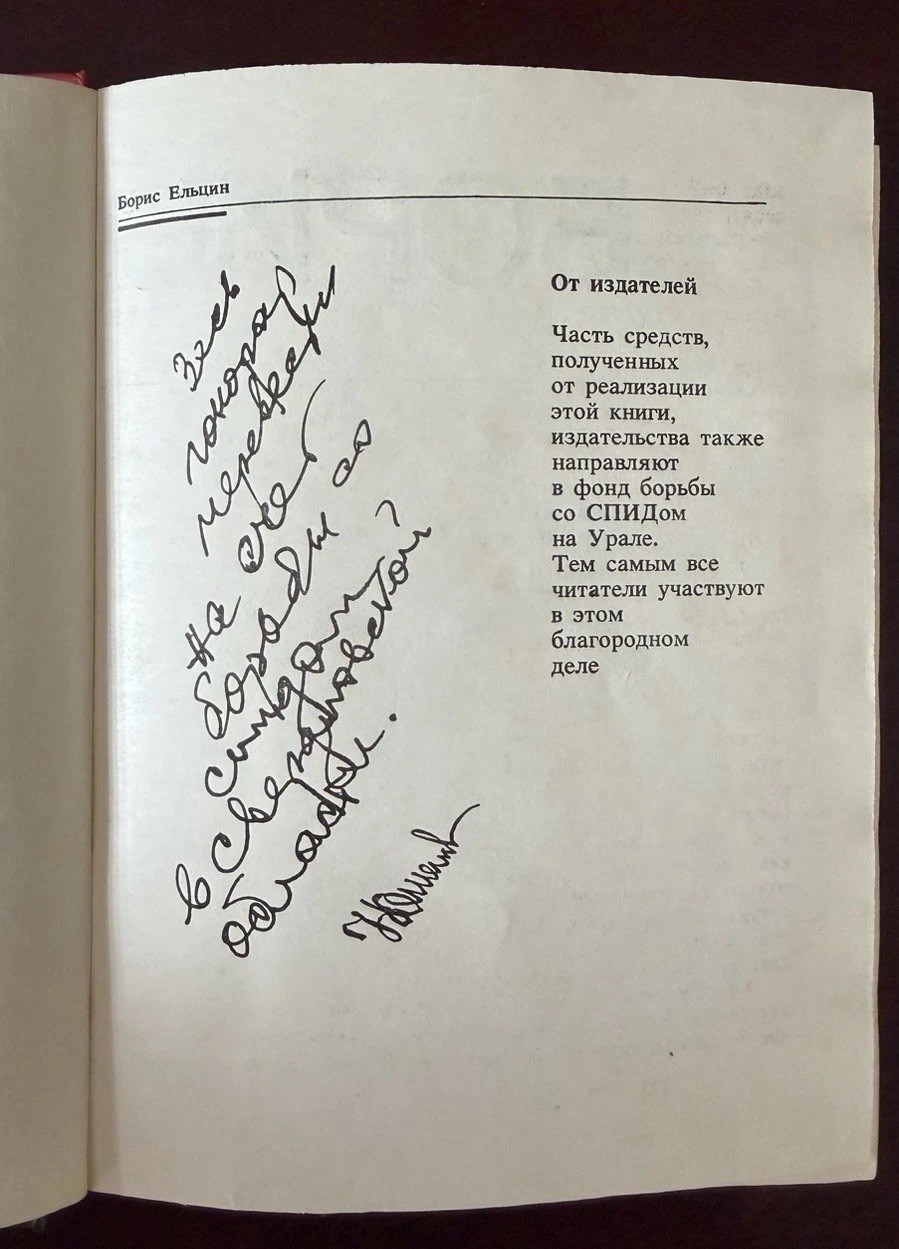 Борис Ельцин
Весь
гонорар
перевести
на счет
борьбы со
спидом
в Свердловской
области.
От издателей
Часть средств,
полученных
от реализации
этой книги,
издательства также
направляют
в фонд борьбы
со СПИДом
на Урале.
Тем самым все
читатели участвуют
в этом
благородном
деле